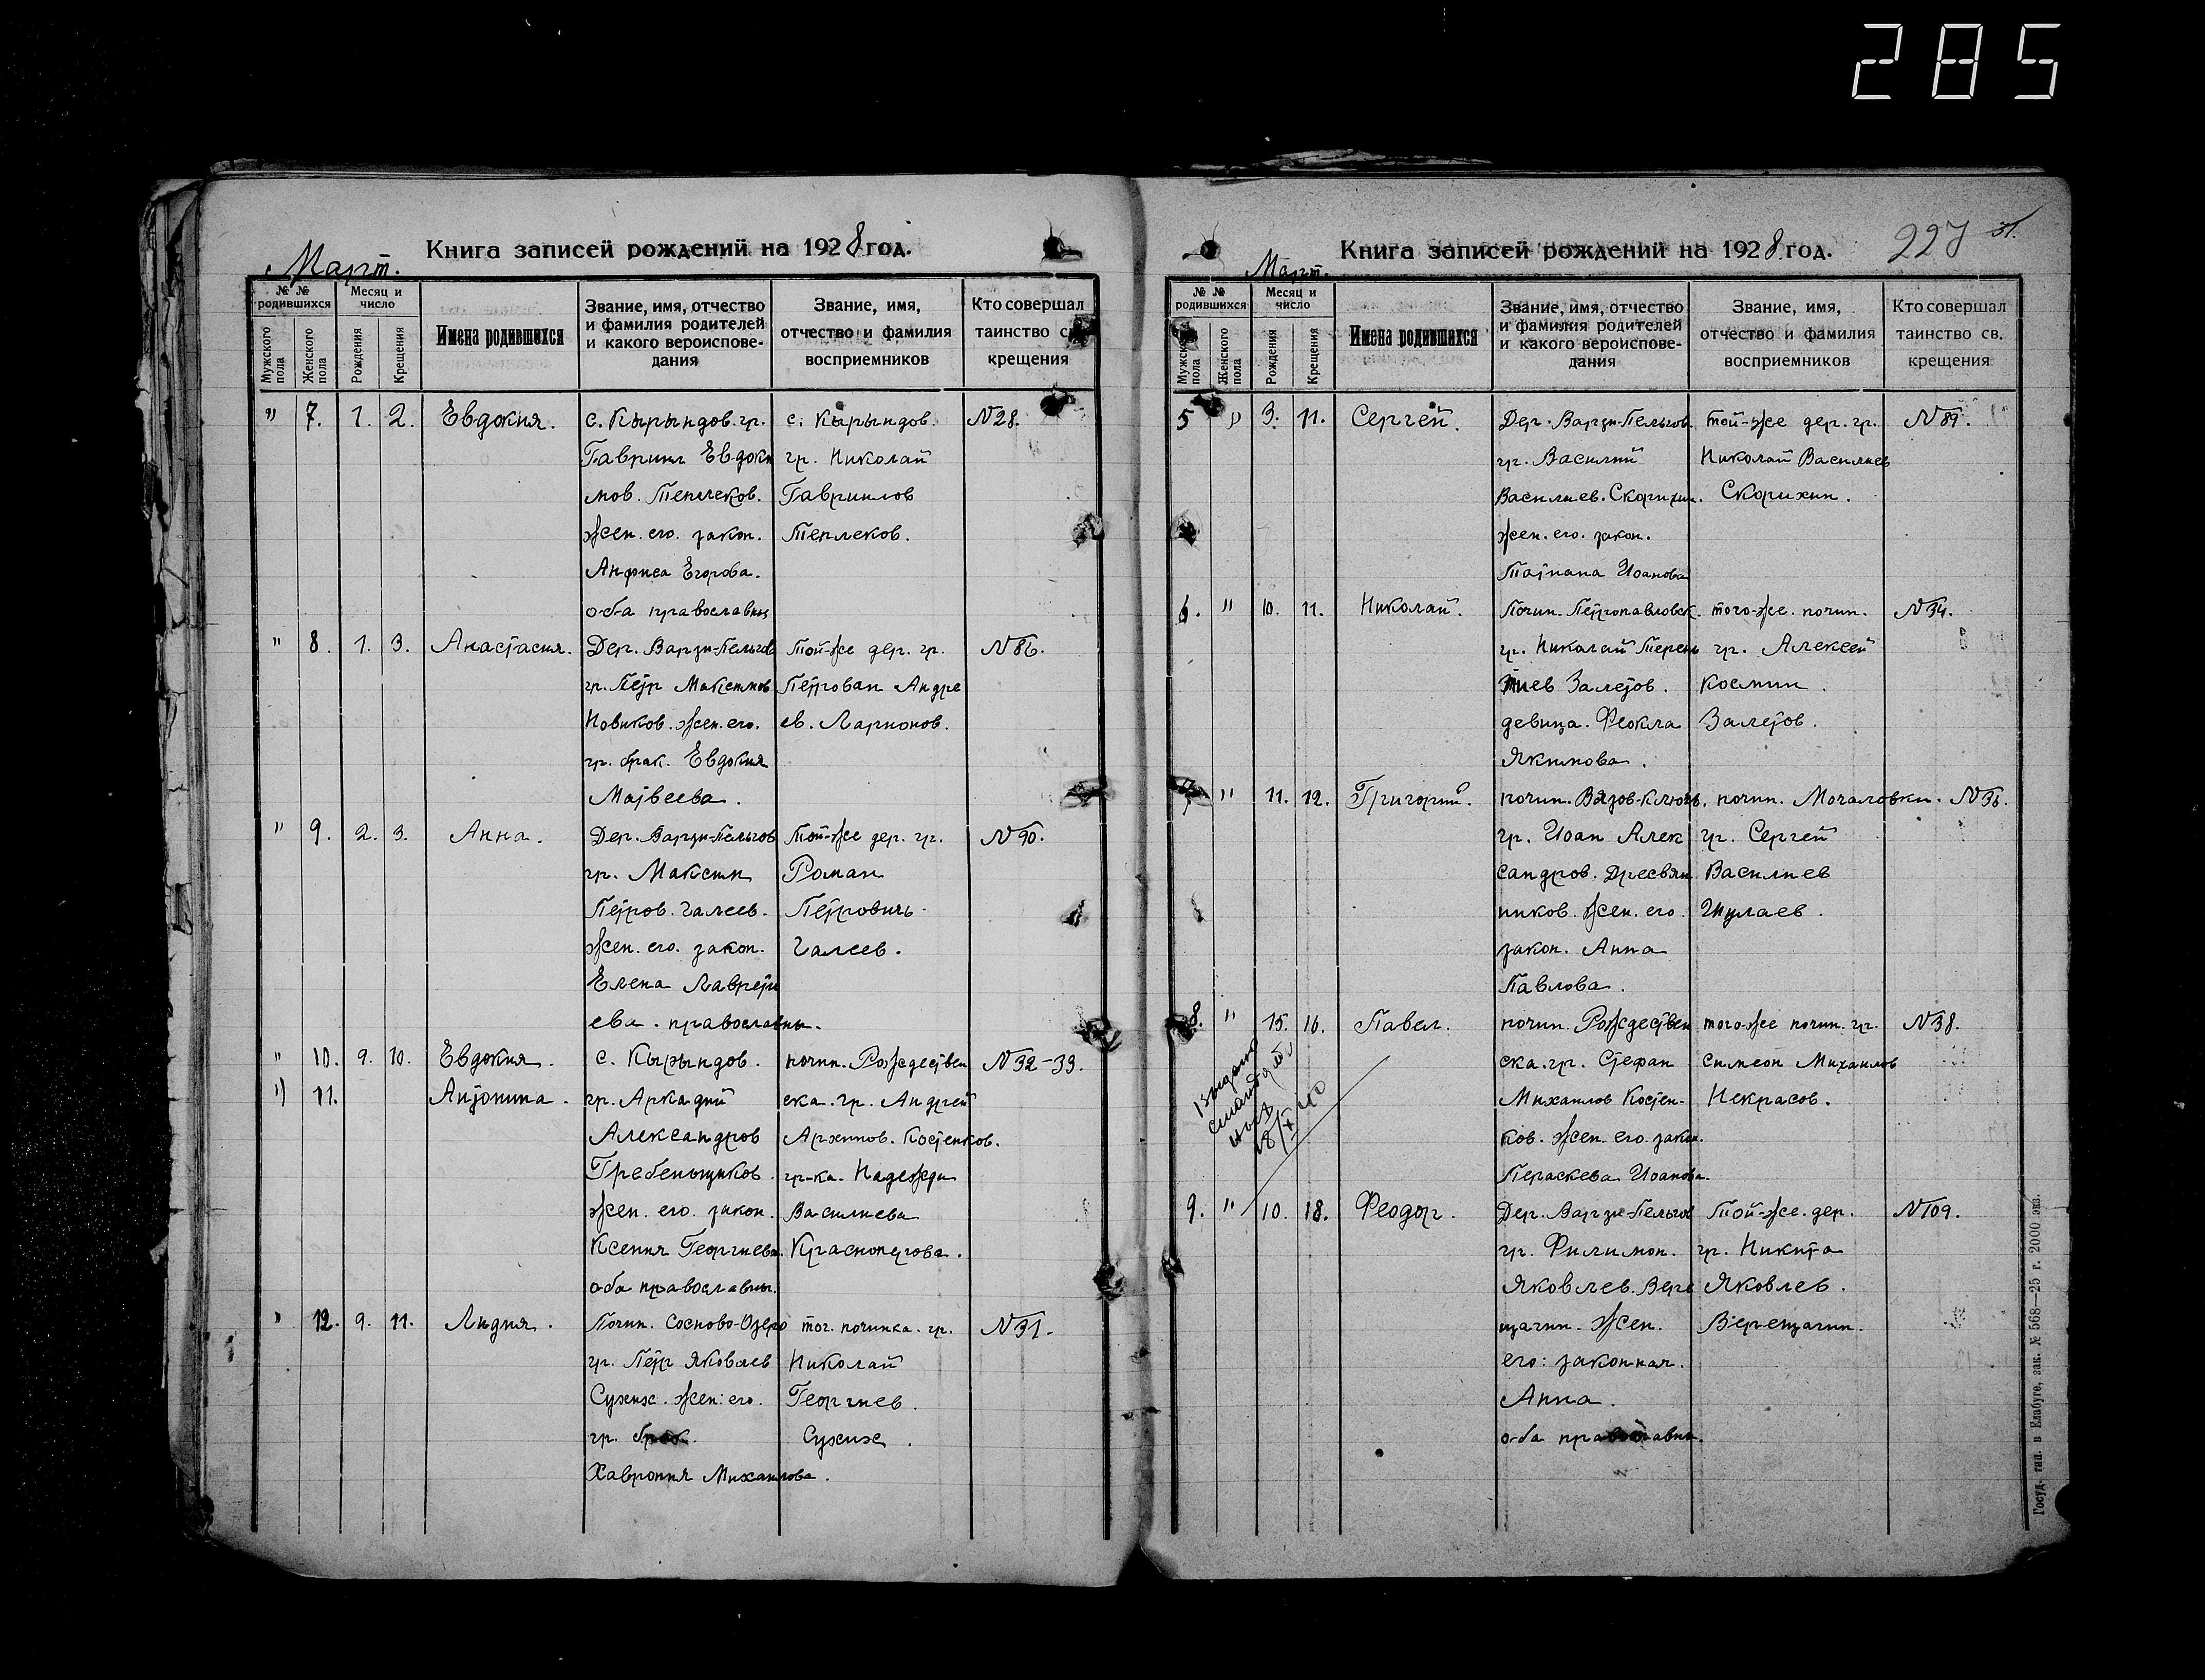 285
Книга записей рождений на 1928 год.
Март.
№ № родившихся
Мужского пола
Женского пола
Месяц и число
Рождения
Крещения
Имена родившихся
Звание, имя, отчество и фамилия родителей и какого вероисповедания
Звание, имя, отчество и фамилия восприемников
Кто совершал таинство св. крещения
" 7. 1. 2. Евдокия. с. Кырындов. гр. с. Кырындов. N28.
Гавриил Евдоки гр. Николай
мов. Теплеков. Гавриилов
жен. его. закон. Теплеков.
Анфиса Егорова.
оба православны
" 8. 1. 3. Анастасия. Дер. Варзи-Пельгов Той-же дер. гр. N86.
гр. Петр Максимов Петрован Андре
Новиков. жен. его. ев. Ларионов.
гр. брак. Евдокия
Матвеева.
" 9. 2. 3. Анна. Дер. Варзи-Пельгов Той-же дер. гр. N90.
гр. Максим Роман
Петров. Галеев. Петровичь
жен. его. закон. Галеев.
Елена Лавренти
ева. православны.
" 10. 9. 10. Евдокия. с. Кырындов. почин. Рождествен N32-33.
" 11. Антонина. гр. Аркадий ска. гр. Андрей
Александров Архипов. Костенков.
Гребенщиков. гр-ка. Надежди
жен. его. закон. Василиева
Ксения Георгиева. Красноперова.
оба православны.
" 12. 9. 11. Лидия. Почин. Сосново-Озеро тог. починка. гр. N31.
гр. Петр Яковлев Николай
Сухих. жен. его. Георгиев.
гр. брак. Сухих.
Хаврония Михаилова.
Книга записей рождений на 1928 год.
227 31.
Март.
№ № родившихся
Мужского пола
Женского пола
Месяц и число
Рождения
Крещения
Имена родившихся
Звание, имя, отчество и фамилия родителей и какого вероисповедания
Звание, имя, отчество и фамилия восприемников
Кто совершал таинство св. крещения
5 " 3. 11. Сергей. Дер. Варзи-Пельгов. той-же дер. гр. N89.
гр. Василий Николай Василиев
Василиев. Скорихин. Скорихин.
жен. его. закон.
Татиана Иоанова
6. " 10. 11. Николай. Почин. Петропавловск. того-же. почин. N34.
гр. Николай Терень гр. Алексей
тиев Залетов. Космин.
девица. Фекла Залетов.
Якимова.
7. " 11. 12. Григорий. почин. Вязов-Ключь. почин. Мочаловки. N36.
гр. Иоан Алек гр. Сергей
сандров. Дресвян Василиев
ников. жен. его. Шулаев.
закон. Анна
Павлова.
8. " 15. 16. Павел. почин. Рождествен того-же почин. гр. N38.
ска. гр. Стефан Симеон Михаилов
Михаилов Костен- Некрасов.
ков. жен. его. закон.
Пераскева Иоанова.
9. " 10. 18. Феодор. Дер. Варзи-Пельгов Той-же. дер. N109.
гр. Филимон. гр. Никита
Яковлев. Вере Яковлев.
щагин. жен. Верещагин.
его: законная.
Анна.
оба православны.
Госуд. тип. в Елабуге, зак. № 568—25 г. 2000 экз.